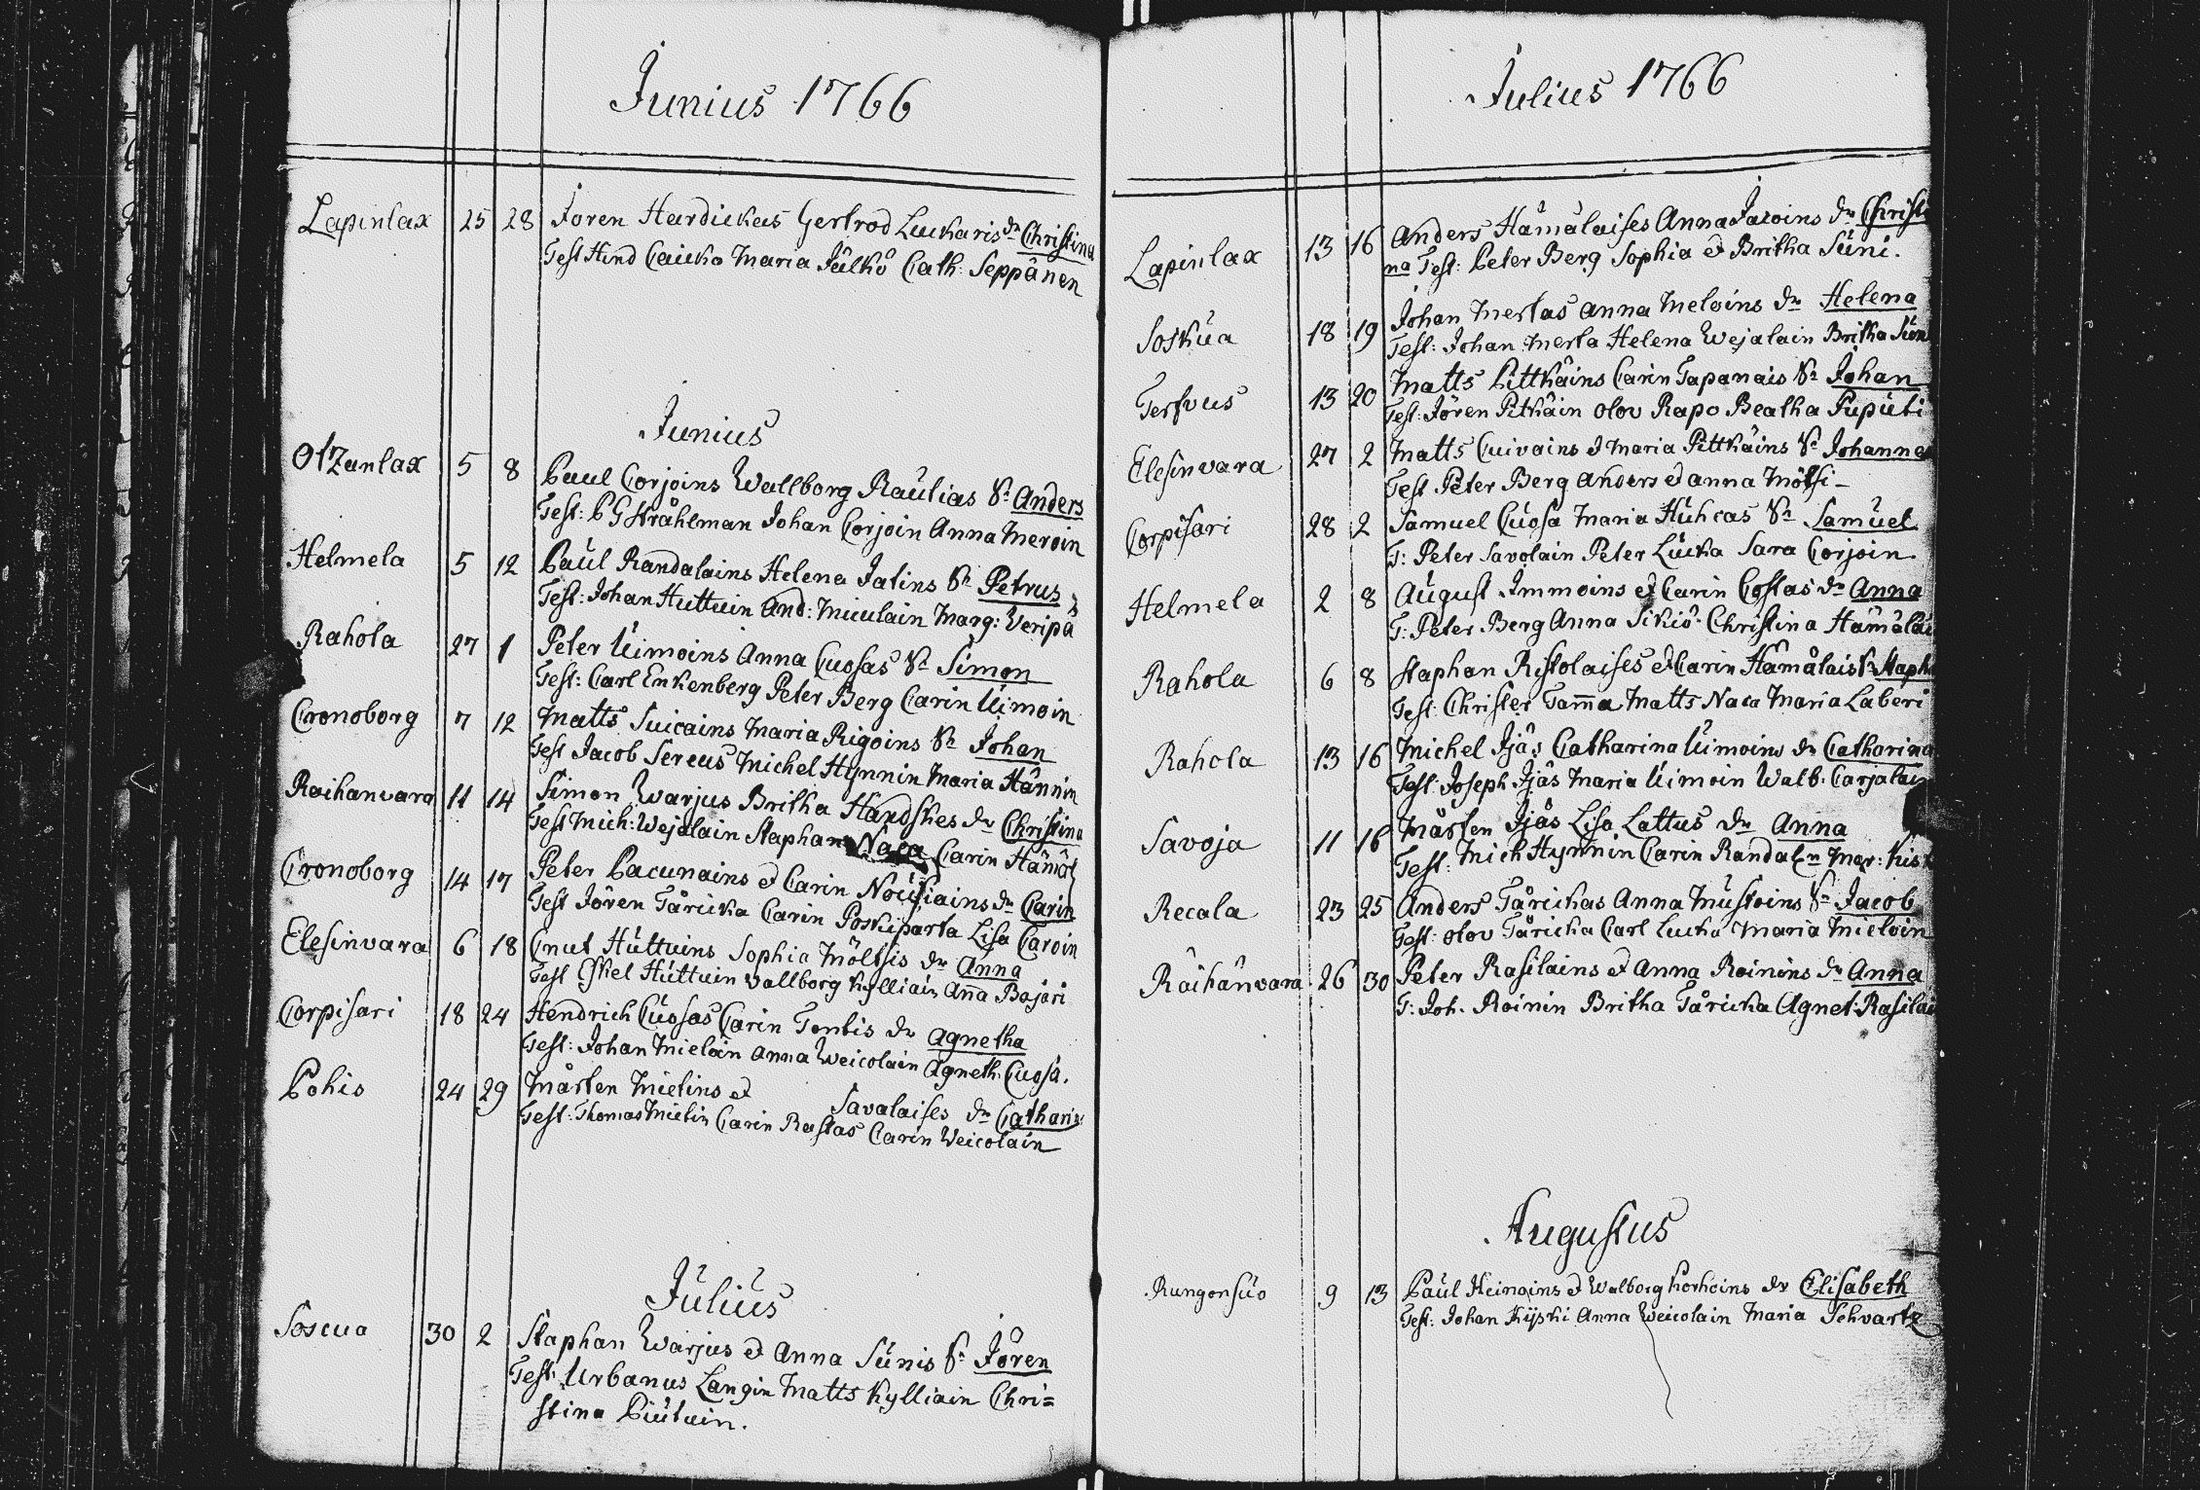 Junius 1766
Lapinlax 25 28 Jören Hardickas Gertrod Luckaris dr Christina
Test Hind Caicko Maria Jälkö Cath: Seppänen
Junius
Otzanlax 5 8 Paul Corjoins Wallborg Raulias Sn Anders
Test: P G Stråhlman Johan Corjoin Anna Meroin
Helmela 5 12 Paul Randalains Helena Jatins Sn Petrus
Test: Johan Huttuin And: Miculain Marg: Veripä
Rahola 27 1 Peter Uimoins Anna Cuosas Sn Simon
Test: Carl Enkenberg Peter Berg Carin Uimoin
Cronoborg 7 12 Matts Suicains Maria Rigoins Sn Johan
Test Jacob Sereus Michel Hynnin Maria Hännin
Raihanvara 11 14 Simon Warjus Britha Handskes dr Christina
Test Mich: Wejalain Staphan Naca Carin Hämäl
Cronoborg 14 17 Peter Pacunains et Carin Nousiains dr Carin
Test Jören Täricka Carin Poskiparta Lisa Caroin
Elesinvara 6 18 Cnut Huttuins Sophia Möltsis dr Anna
Test Eskel Huttuin Vallborg Kylliain Anna Bajari
Corpisari 18 24 Hendrich Cuosas Carin Tontis dr Agnetha
Test: Johan Mieloin Anna Weicolain Agneth: Cuosa.
Pohis 24 29 Mårten Mielins et Savalaises dr Catharin
Test: Thomas Mielin Carin Rastas Carin Weicolain
Julius
Soscua 30 2 Staphan Warjus et Anna Sunis Sn Jören
Test: Urbanus Langin Matts Kylliain Chri=
stina Piutuin.
Julius 1766
Lapinlax 13 16 Anders Hämäläises Anna Javoins dr Christi
na Test: Peter Berg Sophia et Britha Suni.
Soskua 18 19 Johan Mertas Anna Meloins dr Helena
Test: Johan Merta Helena Wejalain Britha Sun
Tervus 13 20 Matts Pittkäins Carin Tapanais Sn Johan
Test: Jören Pitkäin Olov Rapo Beatha Puputi
Elesinvara 27 2 Matts Cuivains et Maria Pittkäins Sn Johannes
Test Peter Berg Anders et Anna Mötsi
Corpisari 28 2 Samuel Cuosa Maria Huhcas Sn Samuel
T: Peter Savolain Peter Lucka Sara Corjoin
Helmela 2 8 August Immoins et Carin Costas dr Anna
T: Peter Berg Anna Sikiö Christina Hämäläi
Rahola 6 8 Staphan Ristolaises et Carin Hämäläis Sn Staph
Test: Christer Tamma Matts Naca Maria Laberi
Rahola 13 16 Michel Jjäs Catharina Uimoins dr Catharina
Test: Joseph Jjäs Maria Uimoin Walb: Carjalain
Savoja 11 16 Mårten Jjäs Lisa Lattus dr Anna
Test: Mich Hynnin Carin Randaln Mar: Kis
Recala 23 25 Anders Tärickas Anna Mustoins Sn Jacob
Test: Olov Täricka Carl Lucka Maria Mieloin
Räihänvara 26 30 Peter Rasilains et Anna Roinins dr Anna
T: Joh. Roinin Britha Täricka Agnet: Rasilai
Augustus
Rungonsuo 9 13 Paul Heinoins et Walborg Korhoins dr Elisabeth
Test: Johan Kijski Anna Weicolain Maria Schvartz